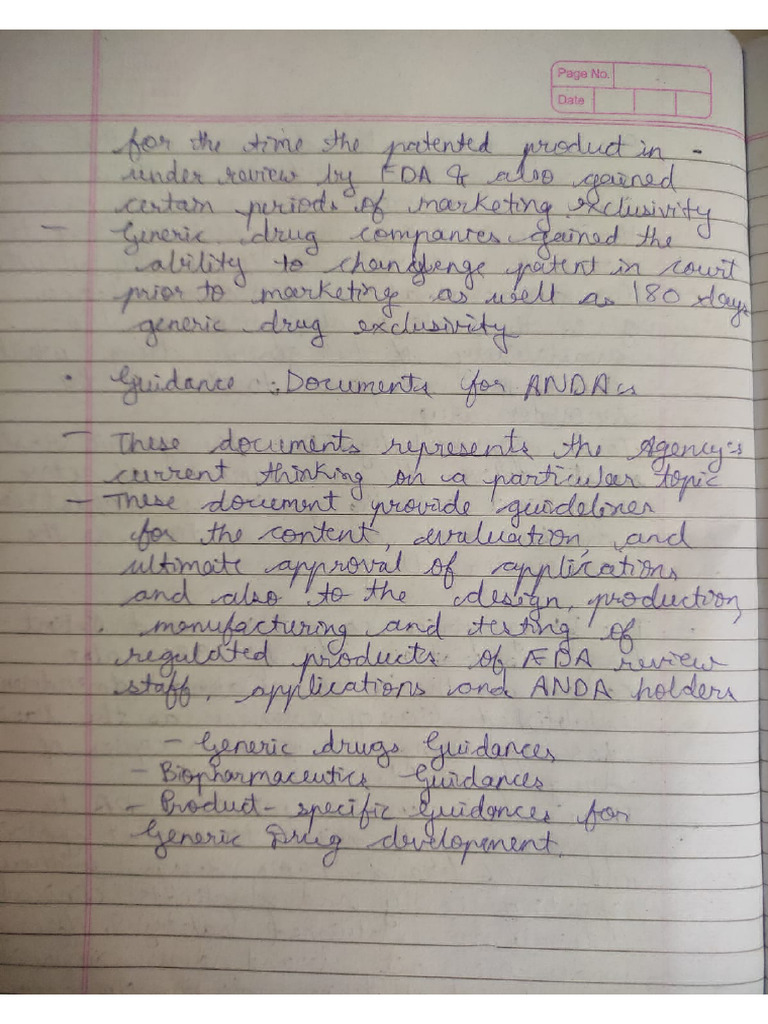 Page No.
Date
for the time the patented product in -
under review by FDA & also gained
certain periods of marketing exclusivity
- Generic drug companies gained the
ability to changlenge patent in court
prior to marketing as well as 180 days
generic drug exclusivity
• Guidance : Documents for ANDAs
- These documents represents the Agency's
current thinking on a particular topic
- These document provide guidelines
for the content, evaluation, and
ultimate approval of applications
and also to the design, production,
manufacturing and testing of
regulated products of FDA review
staff, applications and ANDA holders
- Generic drugs Guidances
- Biopharmaceutics Guidances
- Product-specific Guidances for
Generic Drug development.